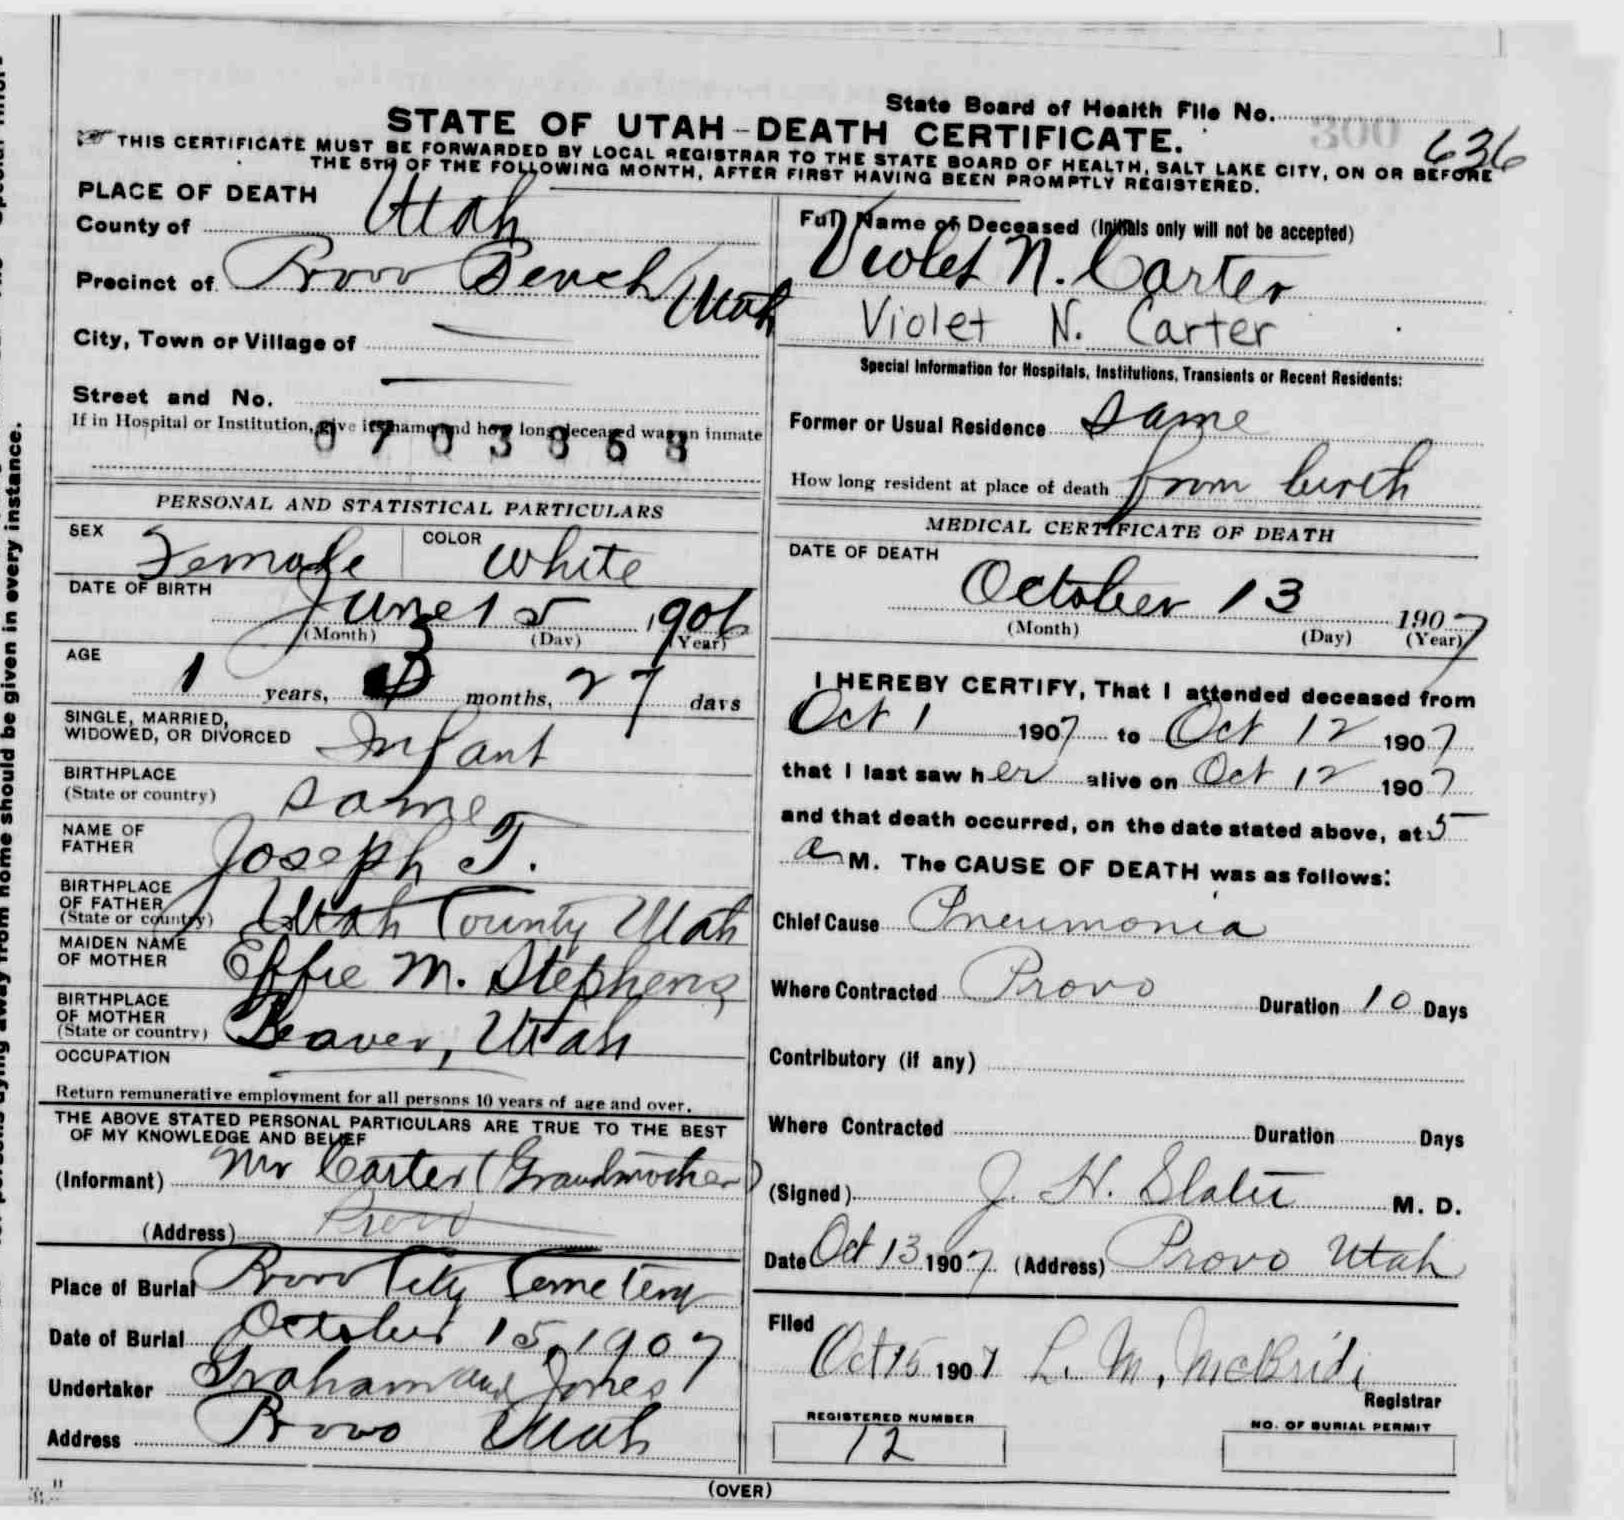 State Board of Health File No. 300
636
STATE OF UTAH - DEATH CERTIFICATE.
THIS CERTIFICATE MUST BE FORWARDED BY LOCAL REGISTRAR TO THE STATE BOARD OF HEALTH, SALT LAKE CITY, ON OR BEFORE
THE 5TH OF THE FOLLOWING MONTH, AFTER FIRST HAVING BEEN PROMPTLY REGISTERED.
PLACE OF DEATH
County of Utah
Precinct of Provo Bench Utah
City, Town or Village of
Street and No.
If in Hospital or Institution, give its name and how long deceased was an inmate
PERSONAL AND STATISTICAL PARTICULARS
SEX Female COLOR White
DATE OF BIRTH June 15 1906
(Month) (Day) (Year)
AGE 1 years, 3 months, 27 days
SINGLE, MARRIED,
WIDOWED, OR DIVORCED Infant
BIRTHPLACE
(State or country) Same
NAME OF
FATHER Joseph T.
BIRTHPLACE
OF FATHER
(State or country) Utah County Utah
MAIDEN NAME
OF MOTHER Effie M. Stephens
BIRTHPLACE
OF MOTHER
(State or country) Beaver, Utah
OCCUPATION
Return remunerative employment for all persons 10 years of age and over.
THE ABOVE STATED PERSONAL PARTICULARS ARE TRUE TO THE BEST
OF MY KNOWLEDGE AND BELIEF
(Informant) Mrs Carter (Grandmother)
(Address) Provo
Place of Burial Provo City Cemetery
Date of Burial October 15, 1907
Undertaker Graham and Jones
Address Provo Utah
Full Name of Deceased (Initials only will not be accepted)
Violet N. Carter
Violet N. Carter
Special Information for Hospitals, Institutions, Transients or Recent Residents:
Former or Usual Residence Same
How long resident at place of death from birth
MEDICAL CERTIFICATE OF DEATH
DATE OF DEATH
October 13 1907
(Month) (Day) (Year)
I HEREBY CERTIFY, That I attended deceased from
Oct 1 1907 to Oct 12 1907
that I last saw her alive on Oct 12 1907
and that death occurred, on the date stated above, at 5
a M. The CAUSE OF DEATH was as follows:
Chief Cause Pneumonia
Where Contracted Provo Duration 10 Days
Contributory (if any)
Where Contracted Duration Days
(Signed) J. H. Slater M. D.
Date Oct 13 1907 (Address) Provo Utah
Filed
Oct 15 1907 L. M. McBride
Registrar
REGISTERED NUMBER
12
NO. OF BURIAL PERMIT
(OVER)
away from home should be given in every instance.